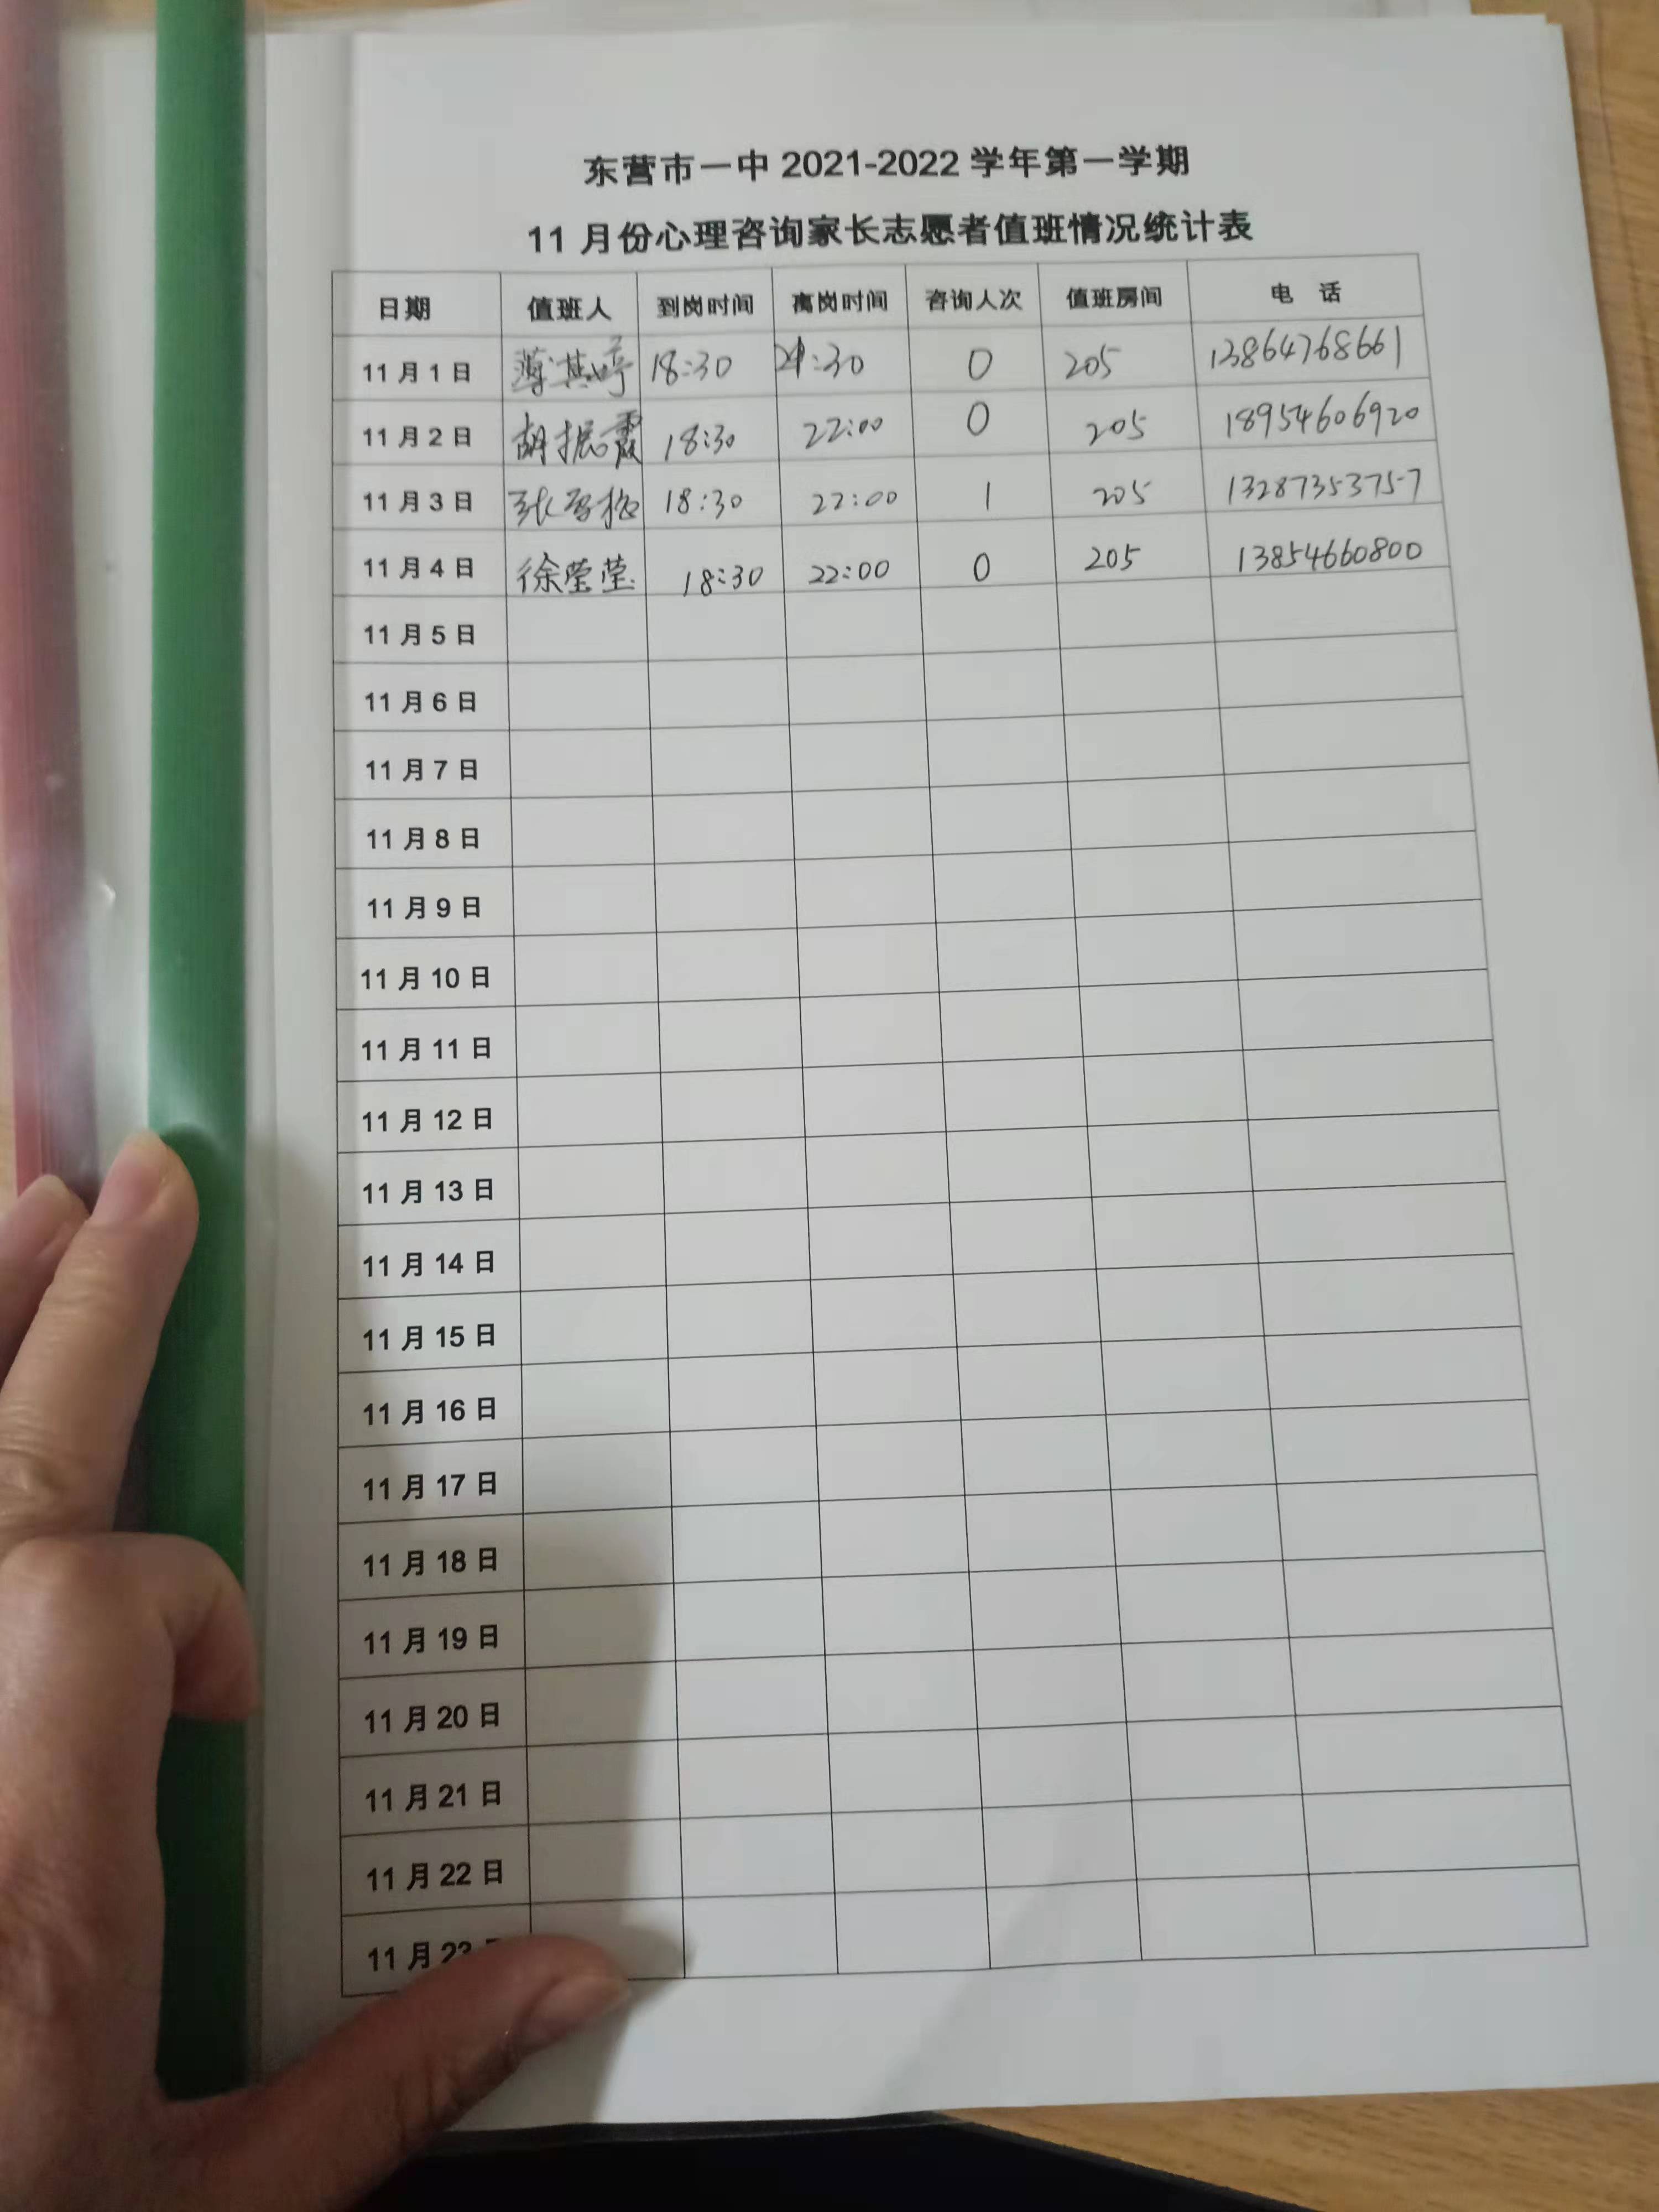 东营市一中 2021-2022 学年第一学期
11 月份心理咨询家长志愿者值班情况统计表
日期 值班人 到岗时间 离岗时间 咨询人次 值班房间 电 话
11 月 1 日 薄其婷 18:30 21:30 0 205 13864768661
11 月 2 日 胡振霞 18:30 22:00 0 205 18954606920
11 月 3 日 张 18:30 22:00 1 205 13287353757
11 月 4 日 徐莹莹 18:30 22:00 0 205 13854660800
11 月 5 日
11 月 6 日
11 月 7 日
11 月 8 日
11 月 9 日
11 月 10 日
11 月 11 日
11 月 12 日
11 月 13 日
11 月 14 日
11 月 15 日
11 月 16 日
11 月 17 日
11 月 18 日
11 月 19 日
11 月 20 日
11 月 21 日
11 月 22 日
11 月 23